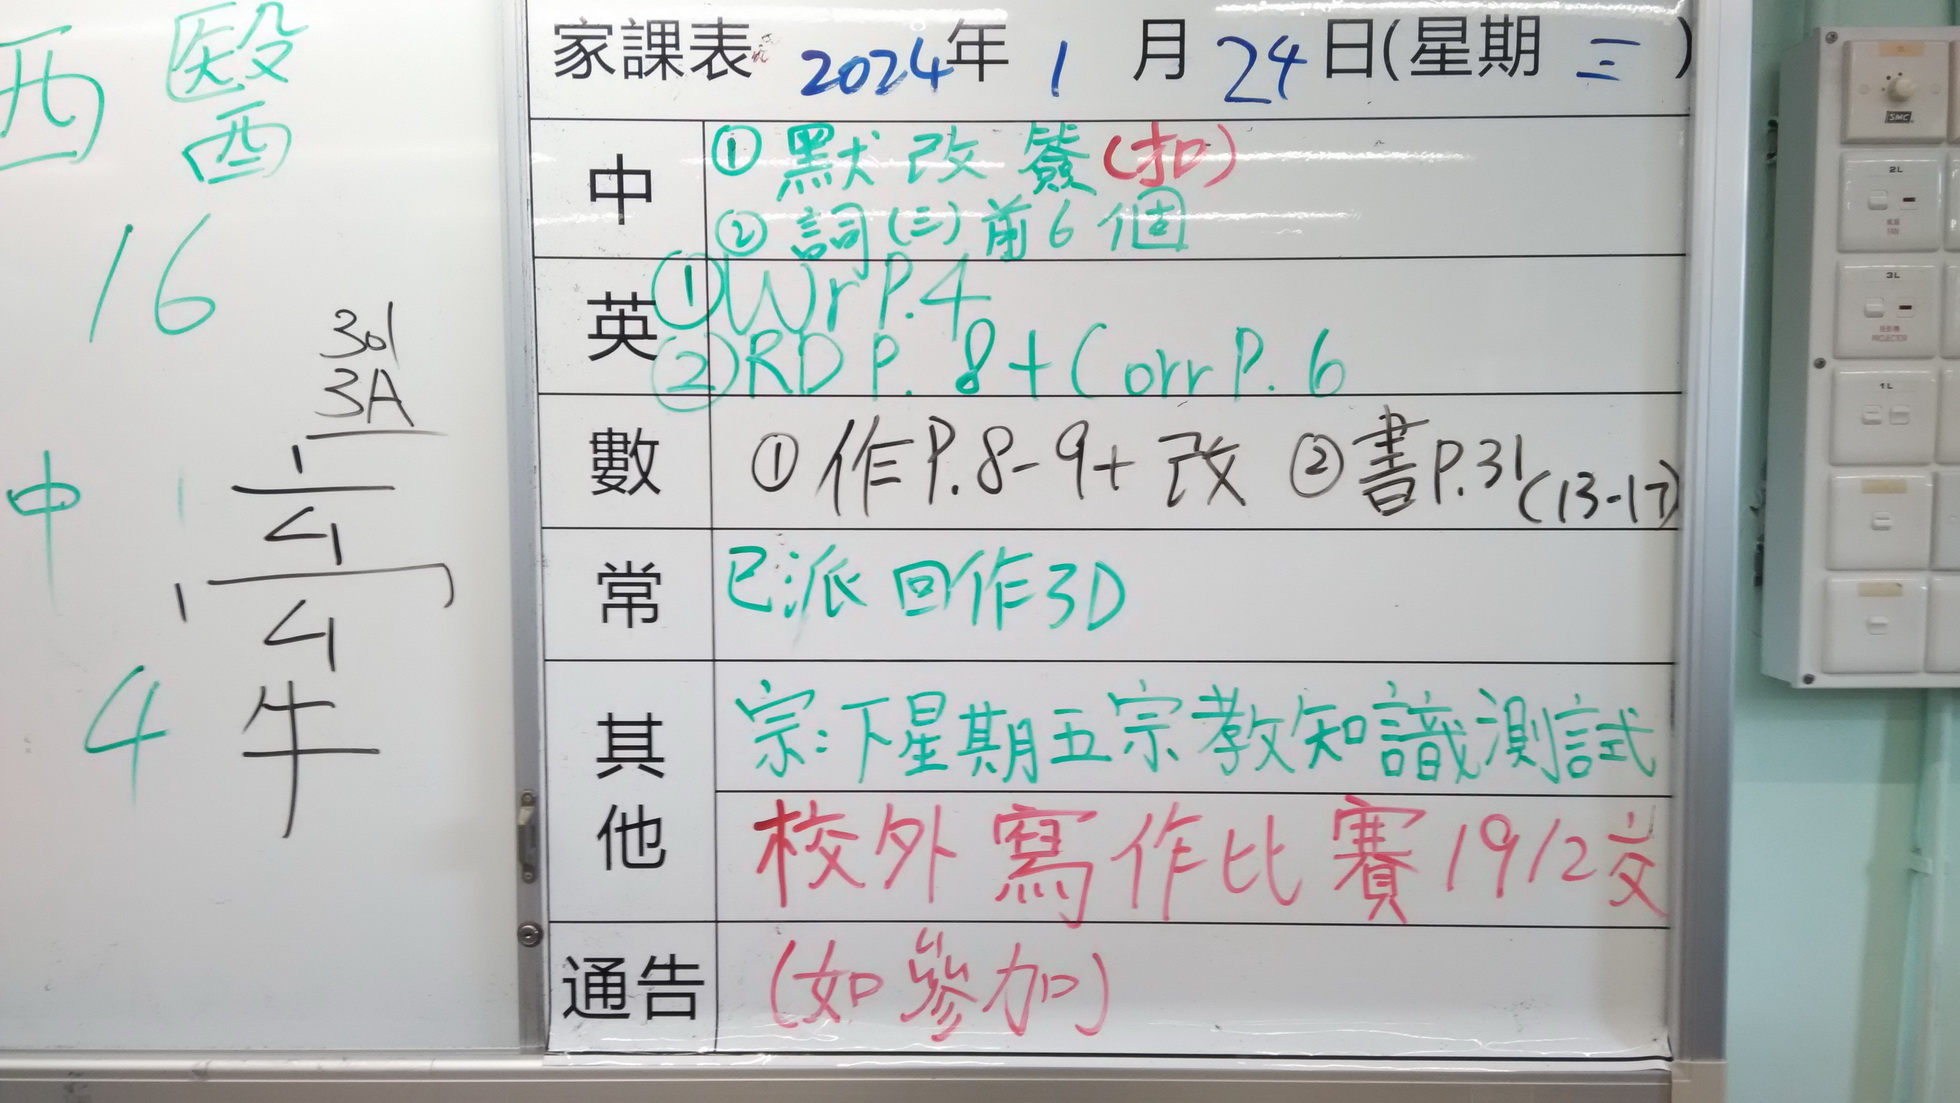 西 醫
酉
16
3d
3A
中
4 牛
家課表 2024年 1 月 24日(星期 三 )
中
① 默 改 簽(扣)
② 詞(三)前6個
英
① Wr P.4
② RD P. 8 + Corr P. 6
數
① 作P.8-9+ 改 ② 書P.31(13-17)
常
已派 回作3D
其他
宗:下星期五宗教知識測試
校外寫作比賽19/2交
通告
(如參加)
2L
風扇
FAN
3L
投影機
PROJECTOR
1L
SMC